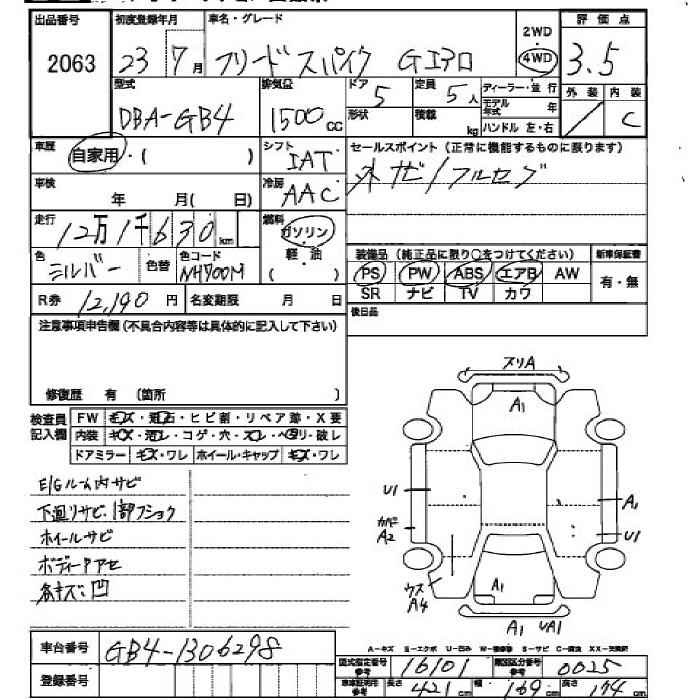 出品番号 初度登録年月 車名・グレード 2WD 評価点
2063 23 7月 フリードスパイク Gエアロ 4WD 3.5
型式 排気量 ドア 定員 ディーラー・並行 外装 内装
DBA-GB4 1500cc 5 5人 モデル年式 年 / C
形状 積載 kg ハンドル 左・右
車歴 自家用・( ) シフト IAT セールスポイント (正常に機能するものに限ります)
車検 年 月( 日) 冷房 AAC 外ナビ/フルセグ
走行 12万1千630km 燃料 ガソリン・軽油 ( )
色 シルバー 色替 色コード NH700M
装備品 (純正品に限り○をつけてください) 新車保証書
PS PW ABS エアB AW 有・無
SR ナビ TV カワ
R券 12,190円 名変期限 月 日
後日品
注意事項申告欄(不具合内容等は具体的に記入して下さい)
修復歴 有 [箇所 ]
検査員記入欄 FW キズ・飛石・ヒビ割・リペア跡・X要
内装 キズ・汚レ・コゲ・穴・スレ・ヘタリ・破レ
ドアミラー キズ・ワレ ホイール・キャップ キズ・ワレ
E/Gルーム内サビ
下廻りサビ、1部フショク
ホイールサビ
ボディーアセ
各キズ凹
スリA
A1
U1
A1
カベニ
A2
U1
ウス
A4
A1
A1 UA1
A-キズ E-エクボ U-凹み W-補修跡 S-サビ C-腐食 XX-交換済
車台番号 GB4-1306298
型式指定番号参考 16101 類別区分番号参考 0025
登録番号
車車証明用参考 長さ 421cm 幅 169cm 高さ 174cm